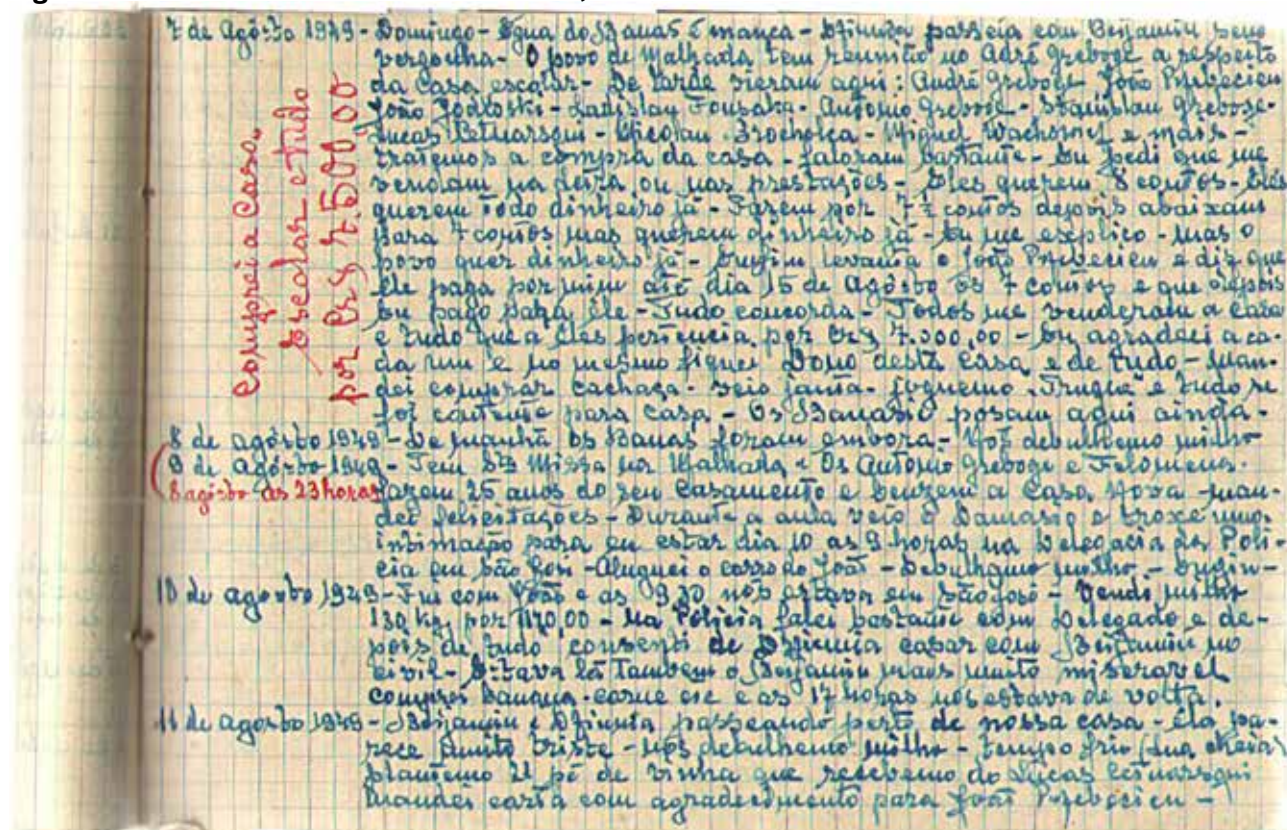 7 de Agôsto 1949 - Domingo - Égua do Banas é mança - Efiunia passeia com Benjamin sem
vergonha - O povo de Malhada tem reunião no Adré Greboge a respeito
da Casa escolar - De tarde vieram aqui: André Greboge João Przebecien
João - Ladislau - Antonio Greboge - Stanislau Greboge -
Lucas - Nicolau - Miguel e mais -
tratemos a compra da casa - faloram bastante - Eu pedi que me
vendam na deixa ou nas prestações - Eles querem 8 contos - Eles
querem todo dinheiro já - Fazem por 7 ½ contos depois abaixam
para 7 contos mas querem dinheiro já - Eu me esplico - mas o
povo quer dinheiro já - Emfim levanta o João Przebecien e diz que
ele paga por mim até dia 15 de Agôsto os 7 contos e que depois
eu pago para êle - Tudo concorda - Todos me venderam a casa
e tudo que a eles pertencia por Cr$ 7.500,00 - Eu agradeci a ca-
da um e no mesmo fiquei Dono desta casa e de tudo - man-
dei comprar cachaça - veio janta - joguemo "Truque" e tudo se
foi contente para casa - Os Banasio posam aqui ainda -
Comprei a Casa
Escolar e tudo
por Cr$ 7.500,00
8 de agôsto 1949 - De manhã os Banas foram embora - Nos debulhemo milho
9 de Agôsto 1949 - Tem Sta Missa na Malhada - Os Antonio Greboge e Filomena
8 agôsto as 23 horas
fazem 25 anos do seu Casamento e benzem a Casa Nova - man-
dei felicitações - Durante a aula veio o Damasio e troxe uma
intimação para eu estar dia 10 as 9 horas na Delegacia de Poli-
cia em São José - Aluguei o carro do João - Debulhemo milho -
10 de agosto 1949 - Fui com João e as 9,30 nós estava em São José - Vendi milho
130 kg por 170,00 - Na Policia falei bastante com Delegado e de-
pois de tudo consenti de Efiunia casar com Benjamin no
civil - Estava lá Tambem o Benjamin mais muito miseravel
comprei Banana - carne etc e as 17 horas nós estava de volta.
11 de agosto 1949 - Benjamin e Efiunia passeando perto de nossa casa - Ela pa-
rece muito triste - nós debulhemo milho - tempo frio (lua cheia)
plantemo 11 pé de vinha que recebemo do Lucas
Mandei carta com agradecimento para João Przebecien -